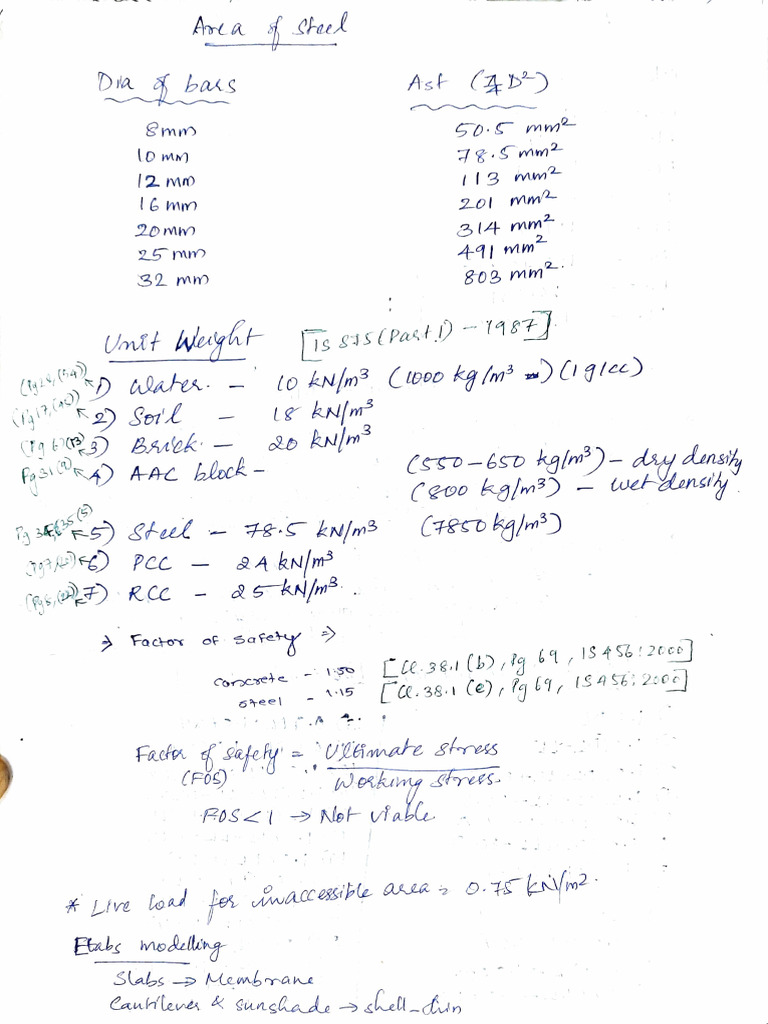 Area of steel
Dia of bars Ast (π/4 D²)
8mm 50.5 mm²
10 mm 78.5 mm²
12 mm 113 mm²
16 mm 201 mm²
20 mm 314 mm²
25 mm 491 mm²
32 mm 803 mm².
Unit Weight [IS 875 (Part.1) - 1987]
1) Water. - 10 kN/m³ (1000 kg/m³ -) (1g/cc)
2) Soil - 18 kN/m³
3) Brick - 20 kN/m³
4) AAC block - (550-650 kg/m³) - dry density
(800 kg/m³) - wet density
5) Steel - 78.5 kN/m³ (7850 kg/m³)
6) PCC - 24 kN/m³
7) RCC - 25 kN/m³.
⇒ Factor of safety ⇒
concrete - 1.50 [Cl.38.1 (b), Pg 69, IS 456:2000]
steel - 1.15 [Cl.38.1 (e), Pg 69, IS 456:2000]
Factor of safety = Ultimate stress
(FOS) Working stress
FOS < 1 → Not viable
* Live load for inaccessible area = 0.75 kN/m².
Etabs modelling
Slabs → Membrane
Cantilever & sunshade → shell-thin